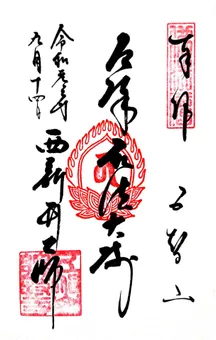 奉拝
五智山
厄除弘法大師
令和元年
九月十四日
西新井大師